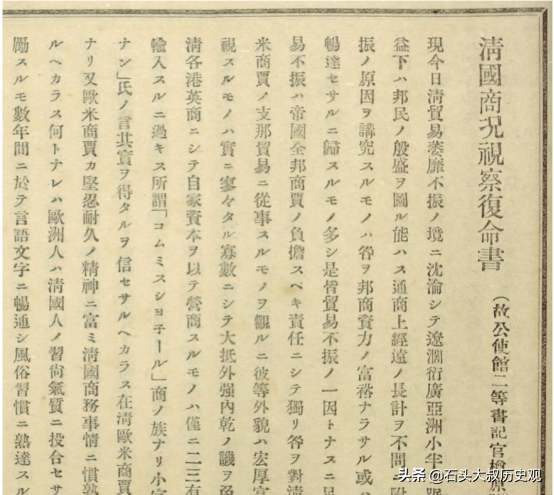 清國商況視察復命書
(故公使館二等書記官楢原
現今日清貿易萎靡不振ノ境ニ沈淪シテ遼濶衍廣亞洲小半
益下ハ邦民ノ殷盛ヲ圖ル能ハス通商上經遠ノ長計ヲ不問
振ノ原因ヲ講究スルモノハ咎ヲ邦商資力ノ富裕ナラサル或
暢達セサルニ歸スルモノ多シ是皆貿易不振ノ一因トナスニ
易不振ハ帝國全邦商賈ノ負擔スベキ責任ニシテ獨リ咎ヲ對
米商賈ノ支那貿易ニ從事スルモノヲ觀ルニ彼等外貌ハ宏厚
視スルモノハ實ニ寥々タル寡數ニシテ大抵外强內乾ノ譏ヲ
清各港英商ニシテ自家資本ヲ以テ營商スルモノハ僅ニ二三
輸入スルニ過キス所謂「コムミスシヨチール」商ノ族ナリ小
ナン」氏ノ言其實ヲ得タルヲ信セサルヘカラス在清歐米商賈
ナリ又歐米商賈カ堅忍耐久ノ精神ニ富ミ清國商務事情ニ慣熟
ルヘカラス何トナレハ歐洲人ハ清國人ノ習尙氣質ニ投合セサ
勵スルモ數年間ニ於テ言語文字ニ暢通シ風俗習慣ニ熟達スル
头条 @石头大叔历史观